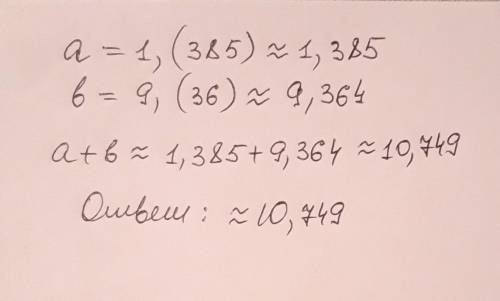 a = 1, (385) ≈ 1, 385
b = 9, (36) ≈ 9, 364
a + b ≈ 1, 385 + 9, 364 ≈ 10, 749
Ответ : ≈ 10, 749